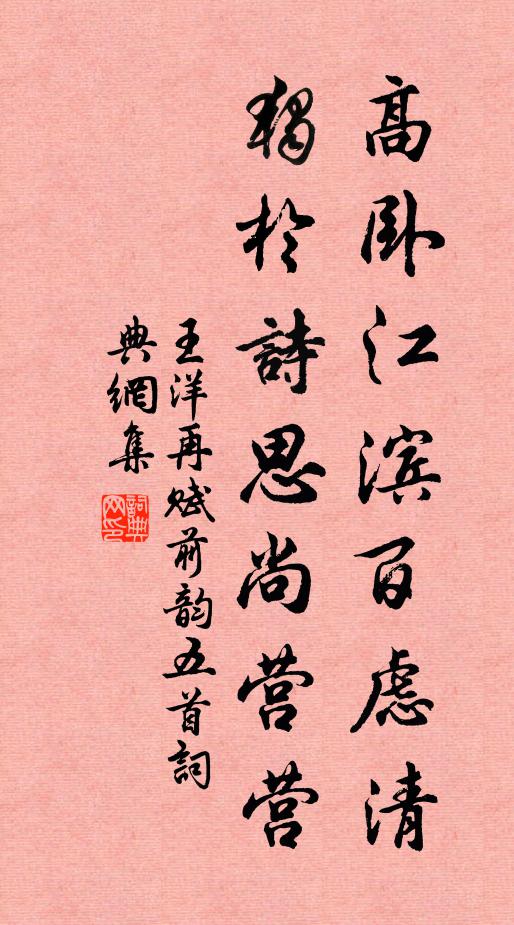 高卧江滨百虑清
獨於詩思尚营营
王洋再赋前韵五首詞
典網集
詞典
网印